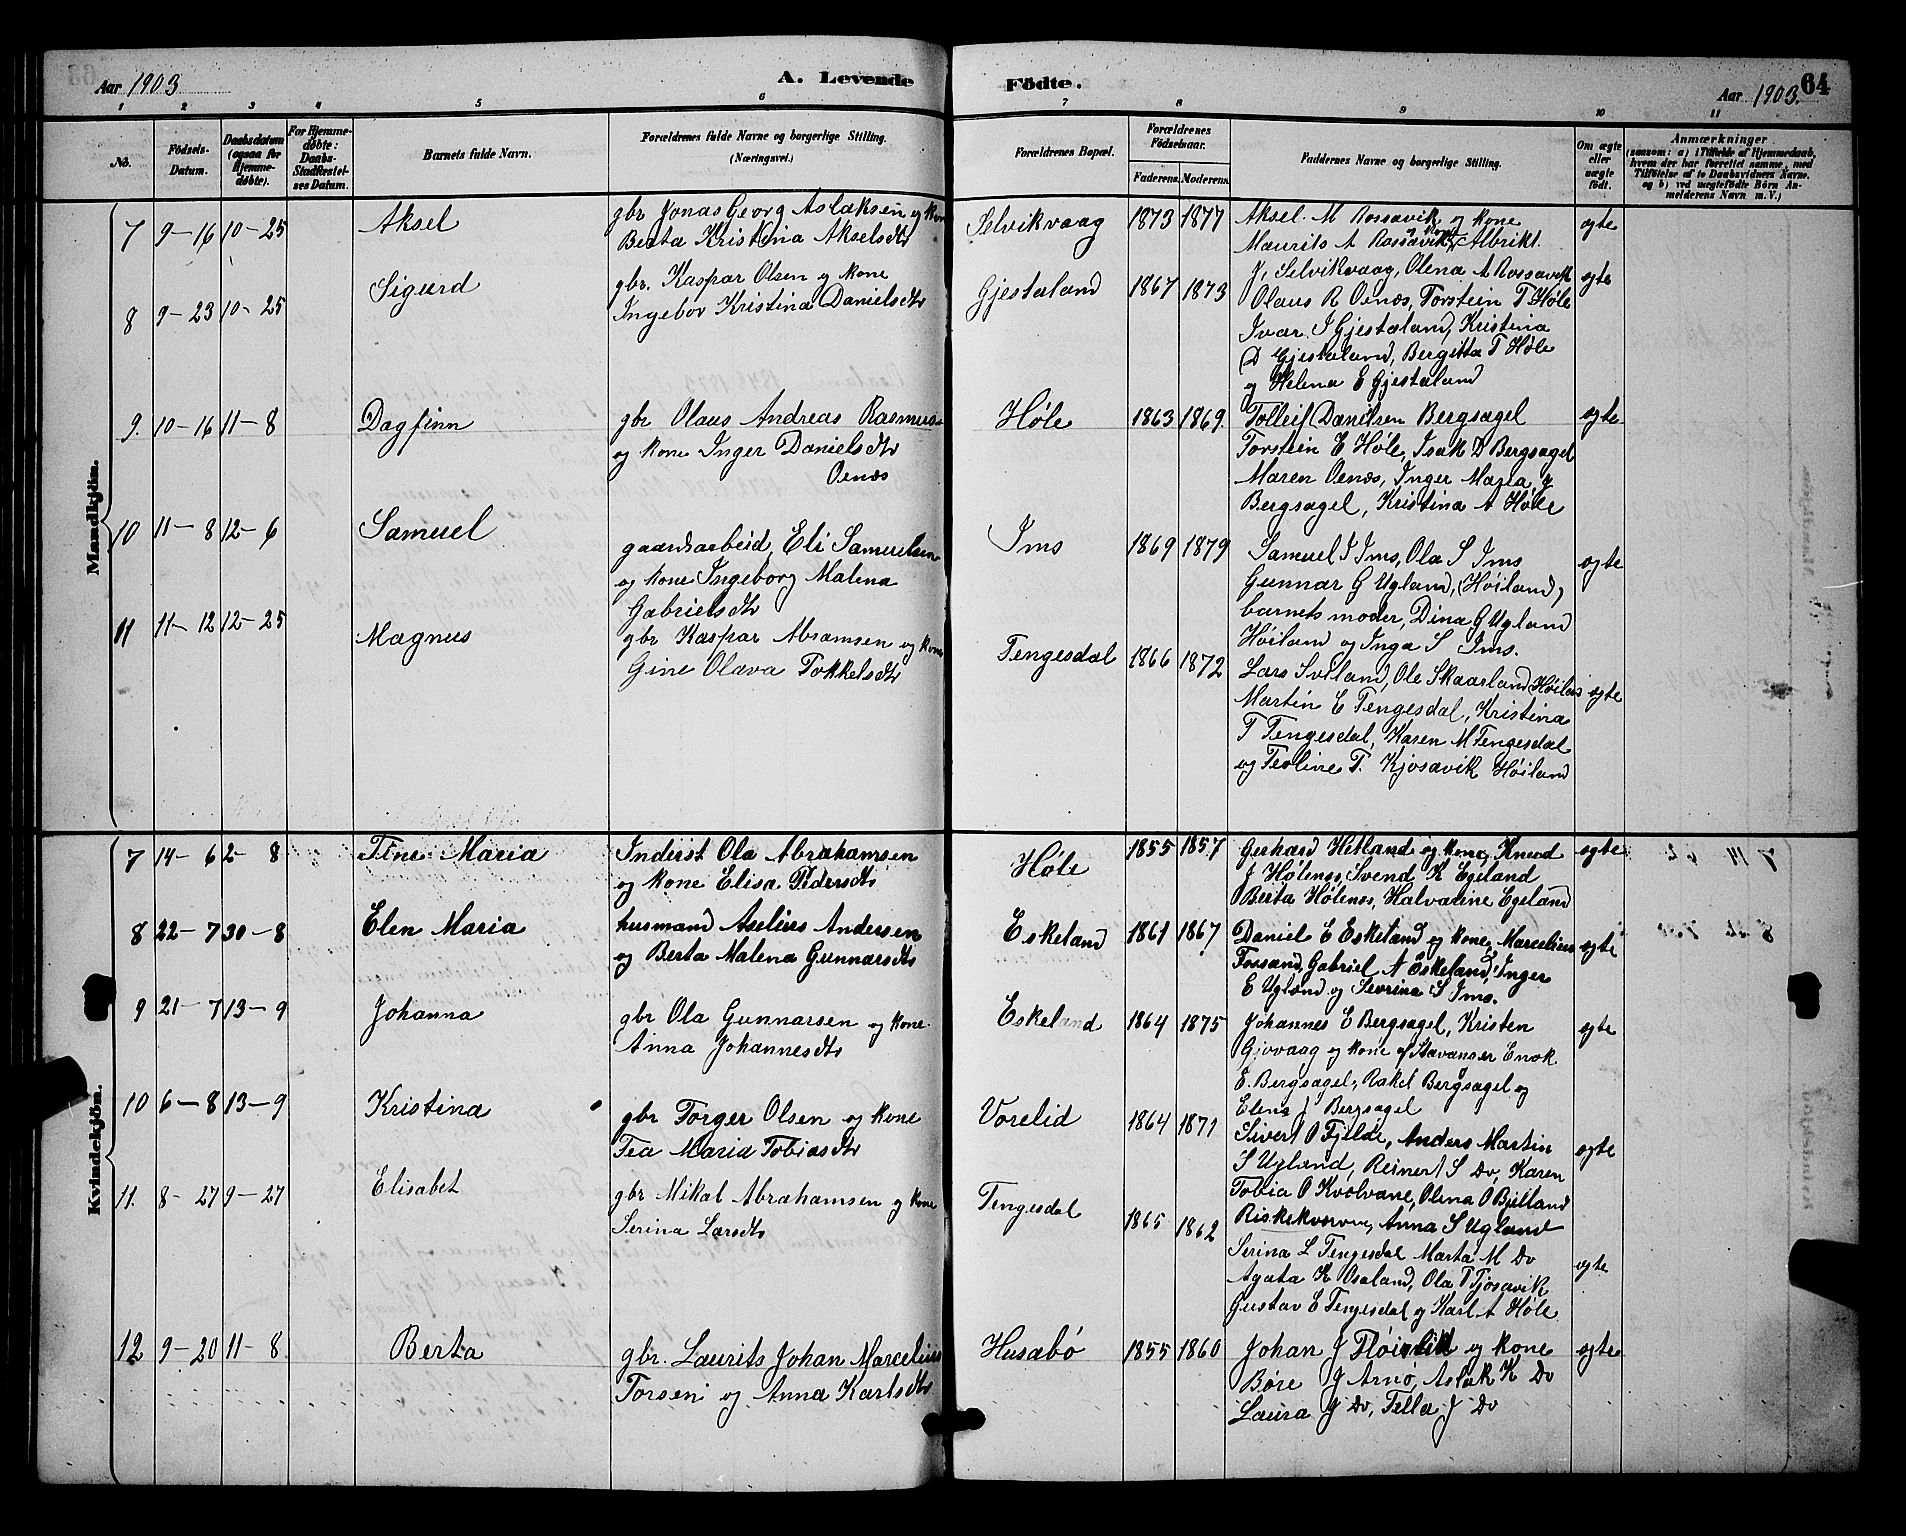 Aar 1903
A. Levende
Födte.
Aar 1903.
64
1 2 3 4 5 6 7 8 9 10 11
No.
Födsels-Datum.
Daabsdatum (ogsaa for Hjemme-døbte).
For Hjemme-døbte: Daabs-Stadfæstel-ses Datum.
Barnets fulde Navn.
Forældrenes fulde Navne og borgerlige Stilling. (Næringsvei.)
Forældrenes Bopæl.
Forældrenes Födselsaar.
Faderens. Moderens.
Faddernes Navne og borgerlige Stilling.
Om ægte eller uægte født.
Anmærkninger
(saasom: a) i Tilfælde af Hjemmedaab, hvem der har forrettet samme, med Tilføielse af to Daabsvidners Navne, og b) ved uægtefödte Börn Anmelderens Navn m. V.)
Mandkjön.
7 9-16 10-25 Aksel
gbr Jonas Georg Aslaksen og kone
Berta Kristina Akselsdtr
Selvikvaag 1873 1877
Aksel M Rossavik og kone
Maurits A Rossavik og kone, Albrikt
J. Selvikvaag, Olena A Rossavik
ogte
8 9-23 10-25 Sigurd
gbr. Kaspar Olsen og kone
Ingebor Kristina Danielsdtr
Gjestaland 1867 1873
Olaus R Oenæs, Torstein T Høle
Ivar I Gjestaland, Kristina
D Gjestaland, Bergitta T Høle
og Helena E Gjestaland
ogte
9. 10-16 11-8 Dagfinn
gbr Olaus Andreas Rasmuss.
og kone Inger Danielsdtr
Oenæs
Høle 1863 1869.
Tolleif Danielsen Bergsagel
Torstein E Høle, Isak D Bergsagel
Maren Oenæs, Inger Maria
Bergsagel, Kristina A Høle
ogte
10 11-8 12-6 Samuel
gaardsarbeid, Eli Samuelsen
og kone Ingeborg Malena
Gabrielsdtr
Ims 1869 1879
Samuel I Ims, Ola S Ims
Gunnar G Ugland, (Høiland)
barnets moder, Dina G Ugland
Høiland og Inga S Ims.
ogte
11 11-12 12-25 Magnus
gbr Kaspar Abramsen og kone
Gine Olava Tokkelsdtr
Tengesdal 1866 1872
Lars Sviland, Ole Skaarland Høiland
Martin E Tengesdal, Kristina
T Tengesdal, Karen M Tengesdal
og Teoline T. Kjosavik Høiland
ogte
Kvindekjön.
7 14-6 2-8 Tine Maria
Inderst Ola Abrahamsen
og kone Elisa Pedersdtr
Høle 1855 1857
Gerhard Hetland og kone, Knud
J Hølenes, Svend K Egeland
Berta Hølenes, Halvardine Egeland
ogte
8 22-7 30-8 Elen Maria
husmand Aselius Andersen
og Berta Malena Gunnarsdtr
Eskeland 1861 1867
Daniel E Eskeland og kone, Marcelius
Forsand, Gabriel A Eskeland, Inger
E Ugland og Sevrina S Ims.
ogte
9 21-7 13-9 Johanna
gbr Ola Gunnarsen og kone
Anna Johannesdtr
Eskeland 1864 1875
Johannes E Bergsagel, Kristen
Gjovaag og kone af Stavanger Enok
E. Bergsagel, Rakel Bergsagel og
Elena J Bergsagel
ogte
10 6-8 13-9 Kristina
gbr Torger Olsen og kone
Tea Maria Tobiasdtr
Vorelid 1864 1871
Sivert O Fjelde, Anders Martin
S Ugland, Reinert S Do, Karen
Tobia O Kvolvane, Olena O Bjelland
Riskekværven, Anna S Ugland
ogte
11. 8-27 9-27 Elisabet
gbr Mikal Abrahamsen og kone
Serina Larsdtr
Tengesdal 1865 1862
Serina L Tengesdal Marta M Do
Agata K Osaland, Ola T Tjosavik
Gustav E Tengesdal og Karl A Høle
ogte
12 9-20 11-8. Berta
gbr. Laurits Johan Marcelius
Torsen og Anna Karlsdtr
Husabø 1855 1860
Johan J og kone
Børe J Arnø, Aslak K Do
Laura J Do, Tella J Do
ogte